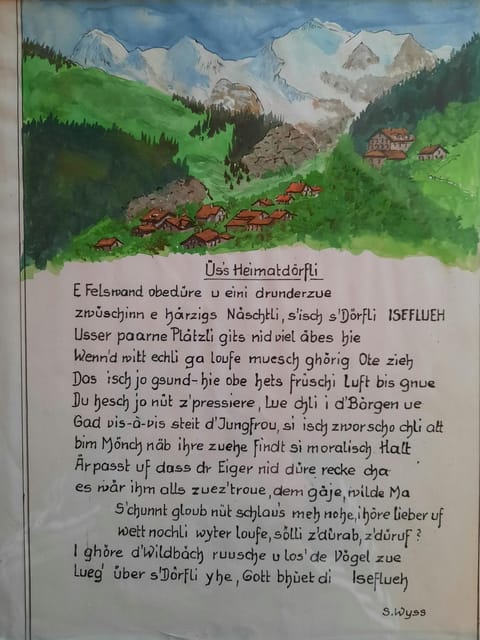 Üs's Heimatdörfli
E Felswand obedüre u eini drunderzue
zwüschinn e härzigs Näschtli, s'isch s'Dörfli ISEFLUEH
Usser paarne Plätzli gits nid viel äbes hie
Wenn'd witt echli ga loufe muesch ghörig Ote zieh
Das isch jo gsund-hie obe hets früschi Luft bis gnue
Du hesch jo nüt z'pressiere, Lue chli i d'Bärgen ue
Gad vis-à-vis steit d'Jungfrou, si isch zworscho chli alt
bim Mönch näb ihre zuehe findt si moralisch Halt
Är passt uf dass dr Eiger nid düre recke cha
es wär ihm alls zuez'troue, dem gäje, wilde Ma
S'chunnt gloub nüt schlaus meh nohe, i höre lieber uf
wett nochli wyter loufe, sölli z'dürab, z'düruf?
I ghöre d'Wildbäch ruusche u los' de Vögel zue
Lueg' über s'Dörfli yhe, Gott bhüet di Iseflueh
S. Wyss